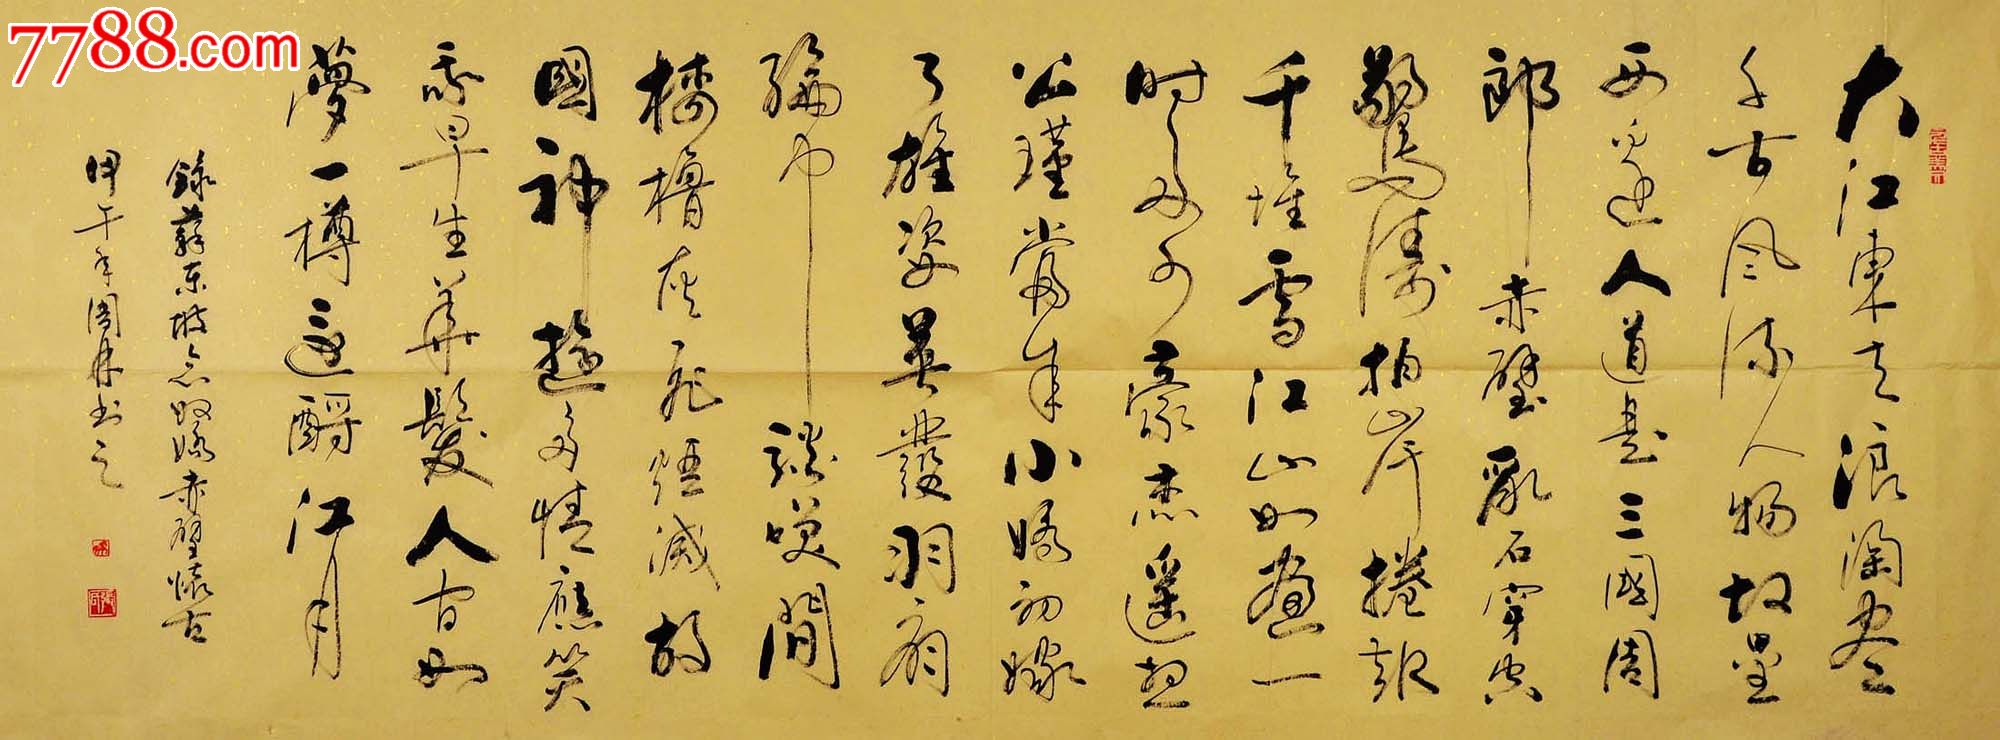 7788.com
大江東去浪淘尽
千古風流人物故壘
西邊人道是三國周
郎赤壁亂石穿空
驚濤拍岸捲起
千堆雪江山如畫一
時多少豪杰遙想
公瑾當年小嬌初嫁
了雄姿英發羽扇
綸巾談笑間
檣櫓灰飛煙滅故
國神遊多情應笑
我早生華髮人間如
夢一樽還酹江月
錄蘇東坡念奴嬌赤壁懷古
甲午年周書之